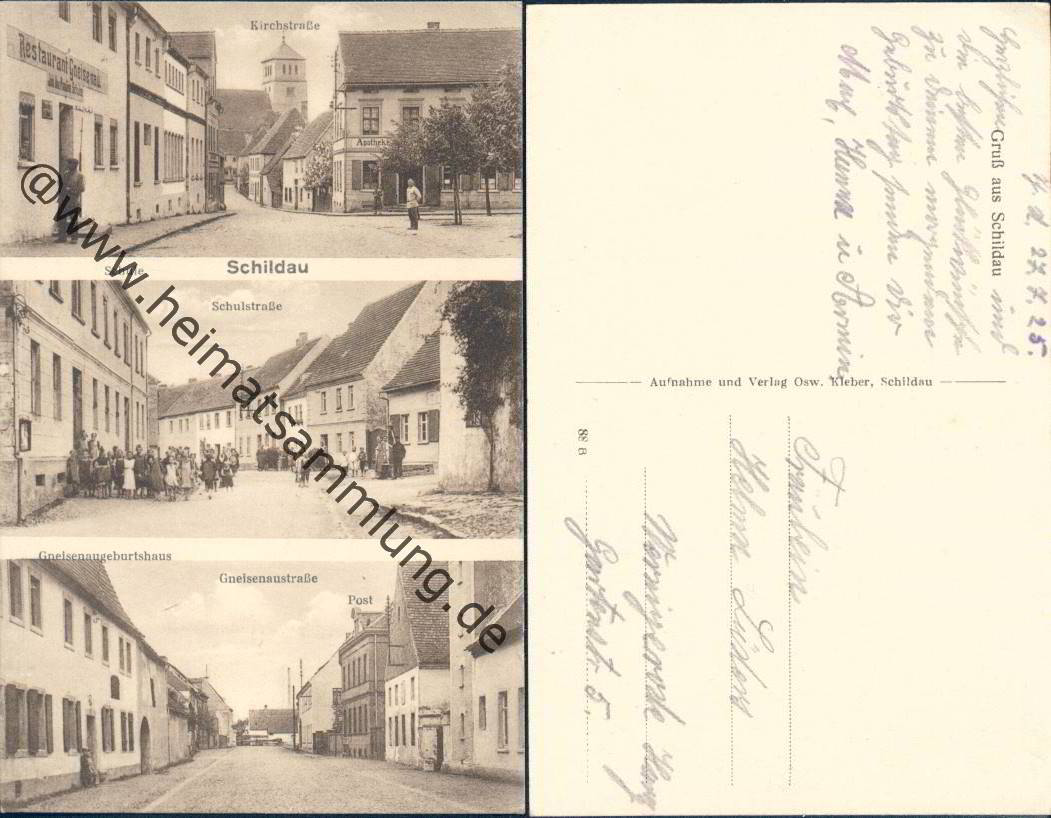 Kirchstraße
Restaurant Gneisenau
Apotheke
Schildau
Schule
Schulstraße
Gneisenaugeburtshaus
Gneisenaustraße
Post
@www.heimatsammlung.de
27.7.25.
Gruß aus Schildau und
Herzlichen
die besten Glückwünsche
zu Deinem morgendl.
Geburtstag senden Dir
u Armin
Aufnahme und Verlag Osw. Kleber, Schildau
88 B
Fräulein
Helma Lüders
Wernigerode Harz
Gartenstr. 5.